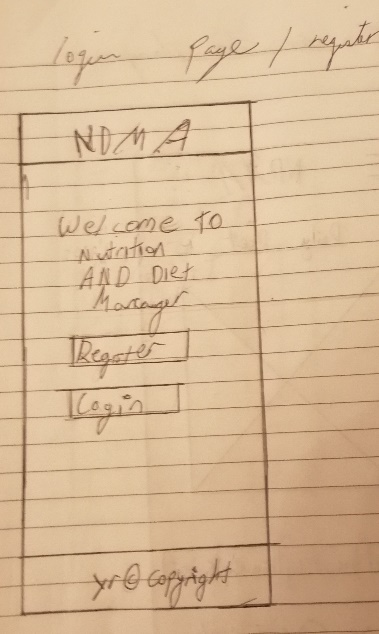 login page / register
NDMA
Welcome to
Nutrition
AND Diet
Manager
Register
Login
yr © copyright